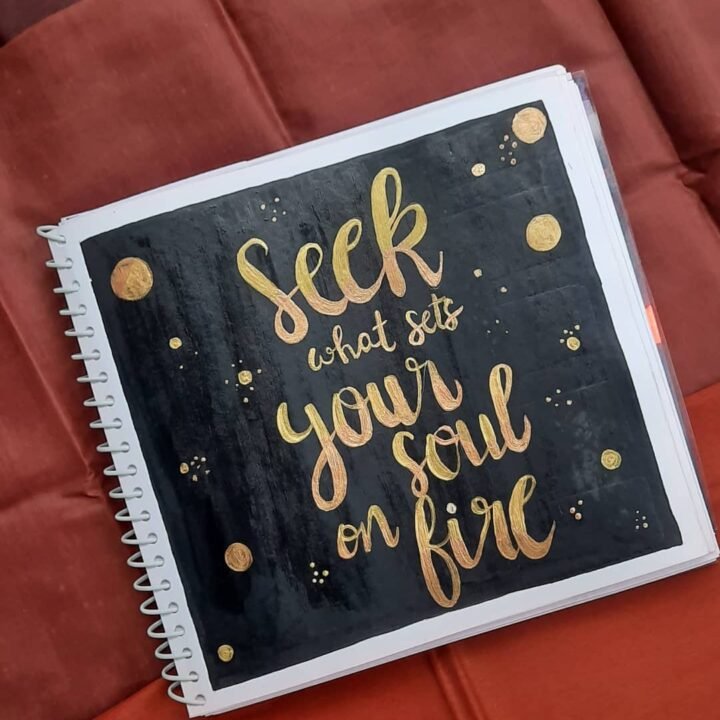 Seek
what sets
your
soul
on fire